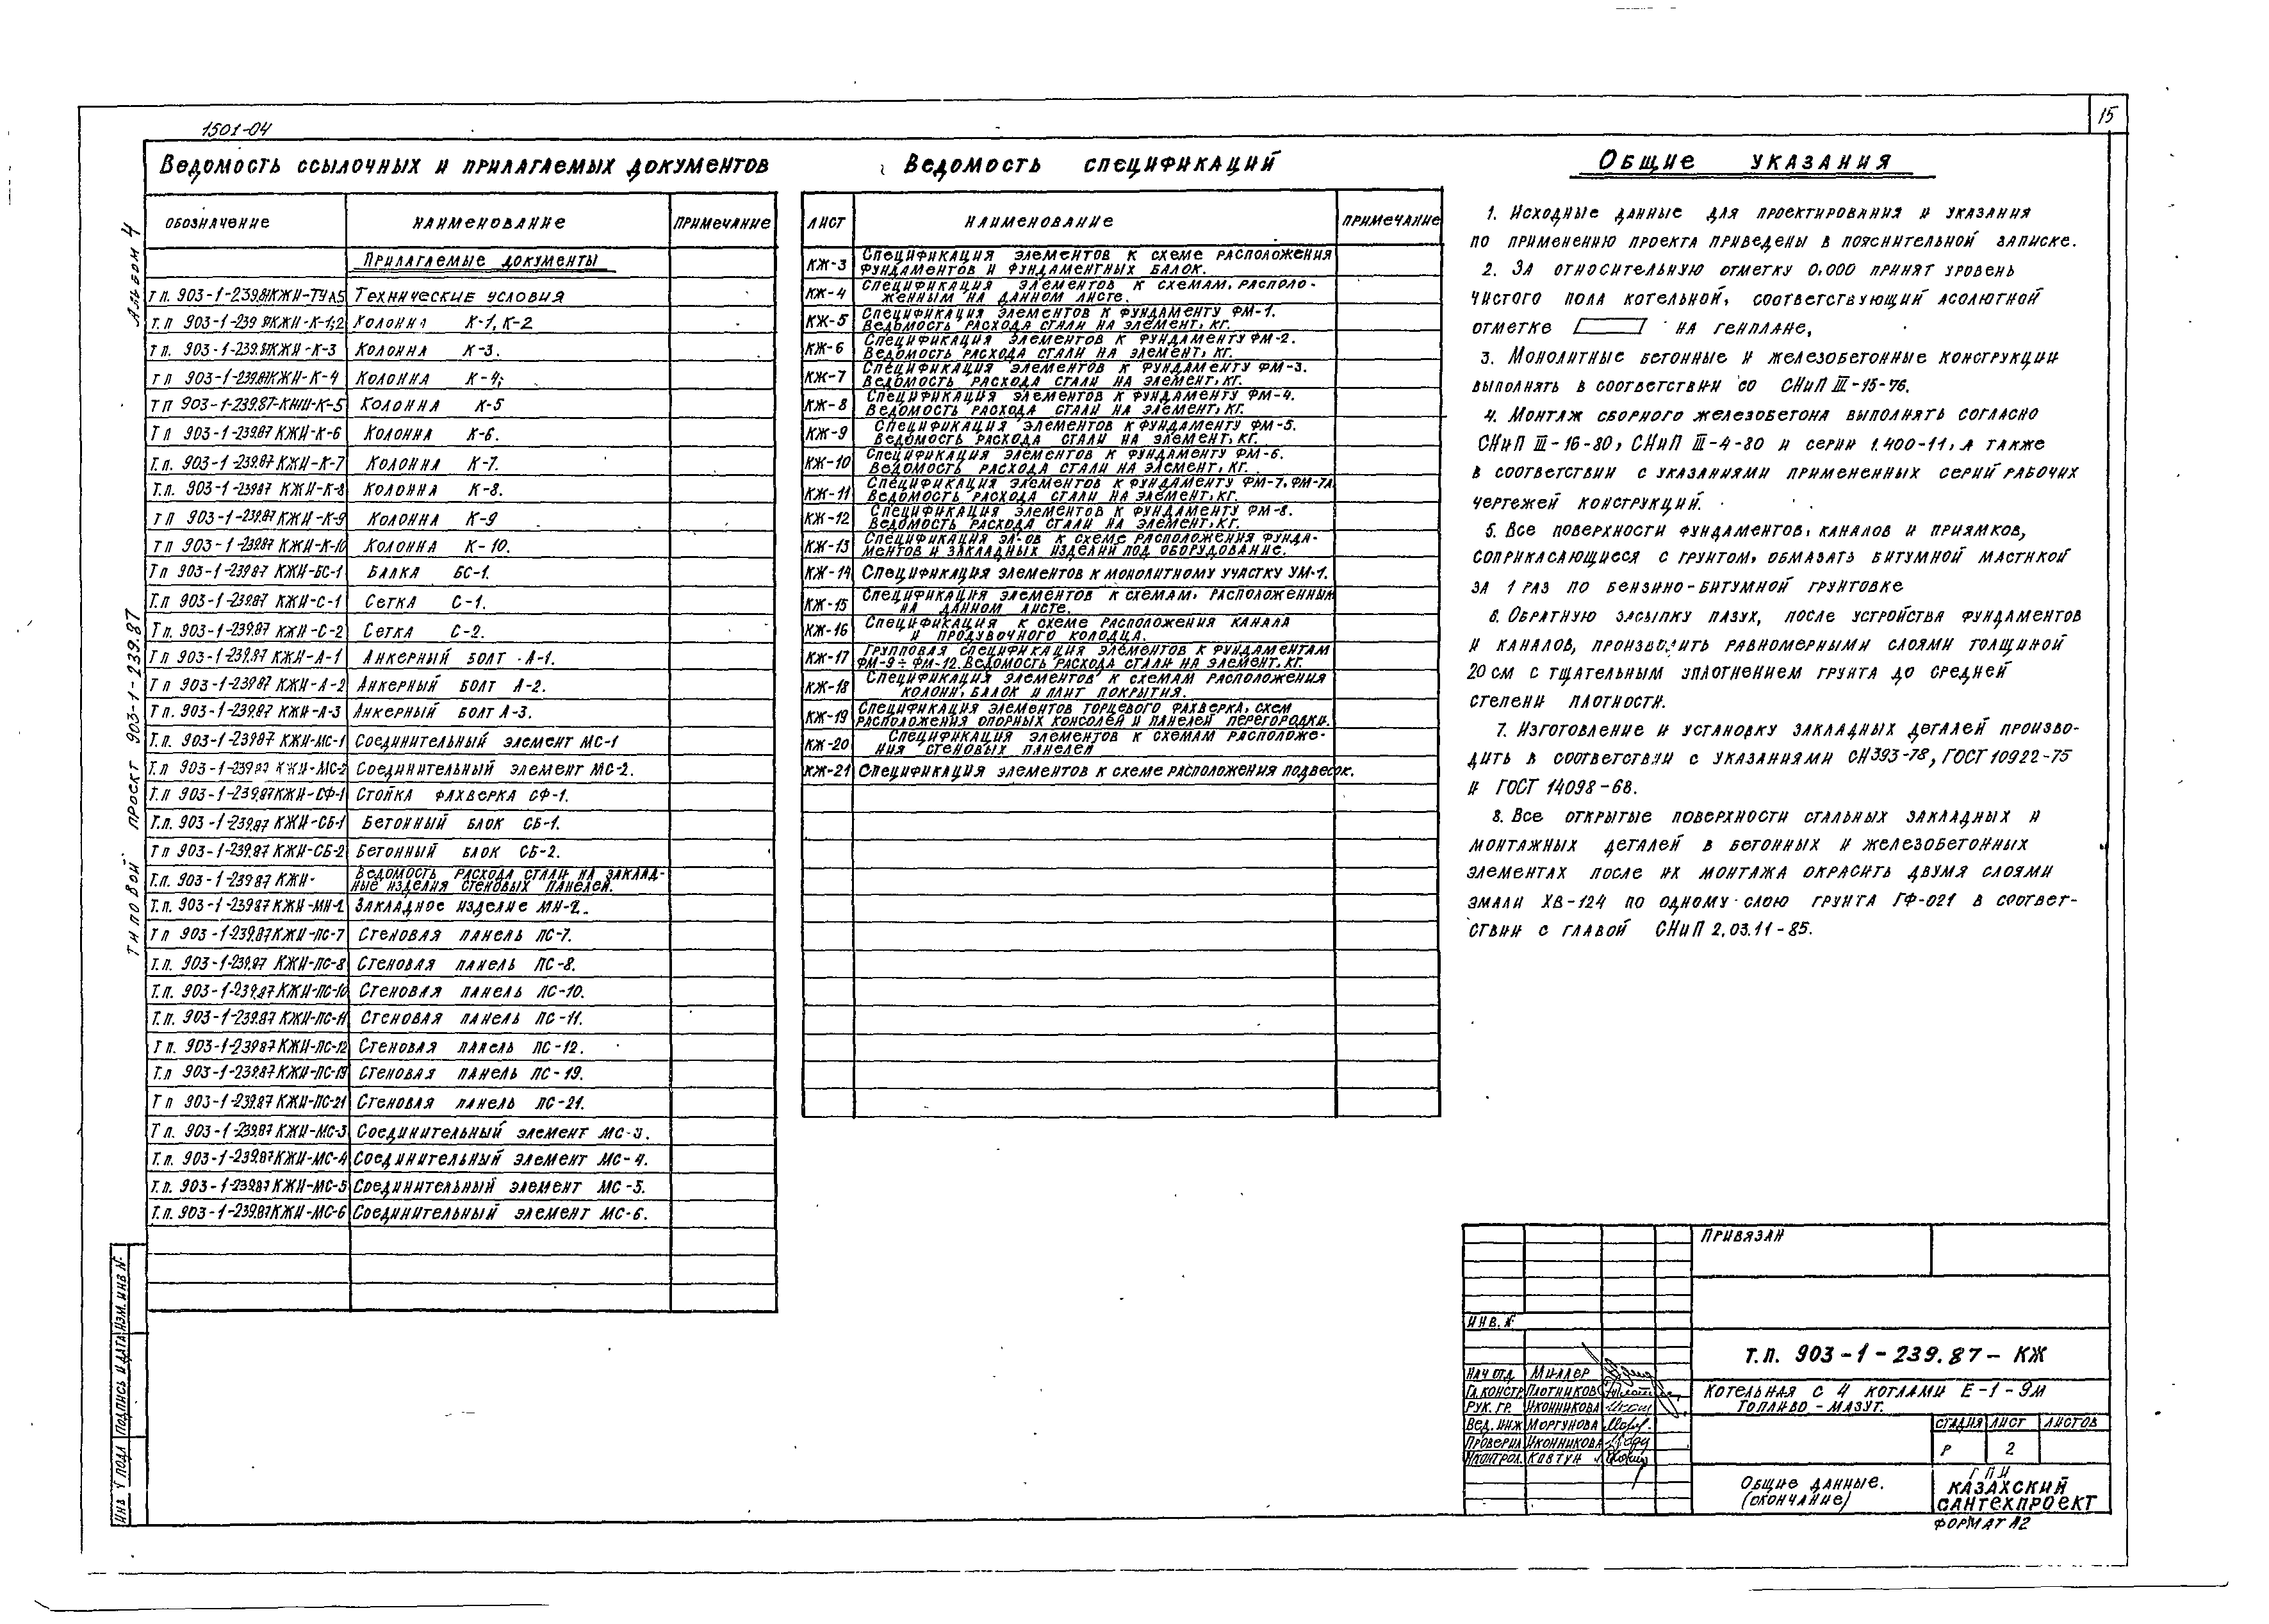 15
1501-04
Альбом 4
Типовой проект 903-1-239.87
Ведомость ссылочных и прилагаемых документов
Обозначение Наименование Примечание
Прилагаемые документы
Технические условия
Т.п 903-1-239.87КЖИ-К-1;2 Колонна К-1, К-2
Т п. 903-1-239.87КЖИ-К-3 Колонна К-3.
Т п 903-1-239.87КЖИ-К-4 Колонна К-4;
Т П 903-1-239.87-КЖИ-К-5 Колонна К-5
Т п 903-1-239.87 КЖИ-К-6 Колонна К-6.
Т.п. 903-1-239.87 КЖИ-К-7 Колонна К-7.
Т.п. 903-1-239.87 КЖИ-К-8 Колонна К-8.
Т П 903-1-239.87 КЖИ-К-9 Колонна К-9
Т п 903-1-239.87 КЖИ-К-10 Колонна К-10.
Т п 903-1-239.87 КЖИ-БС-1 Балка БС-1.
Т.п 903-1-239.87 КЖИ-С-1 Сетка С-1.
Т п. 903-1-239.87 КЖИ-С-2 Сетка С-2.
Т п 903-1-239.87 КЖИ-А-1 Анкерный болт А-1.
Т п 903-1-239.87 КЖИ-А-2 Анкерный болт А-2.
Т.п. 903-1-239.87 КЖИ-А-3 Анкерный болт А-3.
Т.п. 903-1-239.87 КЖИ-МС-1 Соединительный элемент МС-1
Т.п 903-1-239.87 КЖИ-МС-2 Соединительный элемент МС-2.
Т.п 903-1-239.87КЖИ-СФ-1 Стойка фахверка СФ-1.
Т.п. 903-1-239.87 КЖИ-СБ-1 Бетонный блок СБ-1.
Т п 903-1-239.87 КЖИ-СБ-2 Бетонный блок СБ-2.
Т.п. 903-1-239.87 КЖИ- Ведомость расхода стали на заклад-
ные изделия стеновых панелей.
Т.п. 903-1-239.87 КЖИ-МН-2 Закладное изделие МН-2.
Т п 903-1-239.87КЖИ-ПС-7 Стеновая панель ПС-7.
Т.п. 903-1-239.87 КЖИ-ПС-8 Стеновая панель ПС-8.
Т.п. 903-1-239.87 КЖИ-ПС-10 Стеновая панель ПС-10.
Т.п. 903-1-239.87 КЖИ-ПС-11 Стеновая панель ПС-11.
Т п. 903-1-239.87 КЖИ-ПС-12 Стеновая панель ПС-12.
Т.п 903-1-239.87 КЖИ-ПС-19 Стеновая панель ПС-19.
Т п 903-1-239.87 КЖИ-ПС-21 Стеновая панель ПС-21.
Т п. 903-1-239.87 КЖИ-МС-3 Соединительный элемент МС-3.
Т.п. 903-1-239.87КЖИ-МС-4 Соединительный элемент МС-4.
Т.п. 903-1-239.87КЖИ-МС-5 Соединительный элемент МС-5.
Т.п. 903-1-239.87КЖИ-МС-6 Соединительный элемент МС-6.
Ведомость спецификаций
Лист Наименование Примечание
КЖ-3 Спецификация элементов к схеме расположения
фундаментов и фундаментных балок.
КЖ-4 Спецификация элементов к схемам, располо-
женным на данном листе.
КЖ-5 Спецификация элементов к фундаменту ФМ-1.
Ведомость расхода стали на элемент, кг.
КЖ-6 Спецификация элементов к фундаменту ФМ-2.
Ведомость расхода стали на элемент, кг.
КЖ-7 Спецификация элементов к фундаменту ФМ-3.
Ведомость расхода стали на элемент, кг.
КЖ-8 Спецификация элементов к фундаменту ФМ-4.
Ведомость расхода стали на элемент, кг.
КЖ-9 Спецификация элементов к фундаменту ФМ-5.
Ведомость расхода стали на элемент, кг.
КЖ-10 Спецификация элементов к фундаменту ФМ-6.
Ведомость расхода стали на элемент, кг.
КЖ-11 Спецификация элементов к фундаменту ФМ-7, ФМ-7А
Ведомость расхода стали на элемент, кг.
КЖ-12 Спецификация элементов к фундаменту ФМ-8.
Ведомость расхода стали на элемент, кг.
КЖ-13 Спецификация эл-ов к схеме расположения фунда-
ментов и закладных изделий под оборудование.
КЖ-14 Спецификация элементов к монолитному участку УМ-1.
КЖ-15 Спецификация элементов к схемам, расположенным
на данном листе.
КЖ-16 Спецификация к схеме расположения канала
и продувочного колодца.
КЖ-17 Групповая спецификация элементов к фундаментам
ФМ-9÷ФМ-12. Ведомость расхода стали на элемент, кг.
КЖ-18 Спецификация элементов к схемам расположения
колонн, балок и плит покрытия.
КЖ-19 Спецификация элементов торцевого фахверка, схем
расположения опорных консолей и панелей перегородки.
КЖ-20 Спецификация элементов к схемам расположе-
ния стеновых панелей
КЖ-21 Спецификация элементов к схеме расположения подвесок.
Общие указания
1. Исходные данные для проектирования и указания
по применению проекта приведены в пояснительной записке.
2. За относительную отметку 0,000 принят уровень
чистого пола котельной, соответствующий асолютной
отметке на генплане,
3. Монолитные бетонные и железобетонные конструкции
выполнять в соответствии со СНиП III-15-76.
4. Монтаж сборного железобетона выполнять согласно
СНиП III-16-80, СНиП III-4-80 и серии 1.400-11, а также
в соответствии с указаниями примененных серий рабочих
чертежей конструкций.
5. Все поверхности фундаментов, каналов и приямков,
соприкасающиеся с грунтом, обмазать битумной мастикой
за 1 раз по бензино-битумной грунтовке
6. Обратную засыпку пазух, после устройства фундаментов
и каналов, производить равномерными слоями толщиной
20 см с тщательным уплотнением грунта до средней
степени плотности.
7. Изготовление и установку закладных деталей произво-
дить в соответствии с указаниями СН393-78, ГОСТ 10922-75
и ГОСТ 14098-68.
8. Все открытые поверхности стальных закладных и
монтажных деталей в бетонных и железобетонных
элементах после их монтажа окрасить двумя слоями
эмали ХВ-124 по одному слою грунта ГФ-021 в соответ-
ствии с главой СНиП 2.03.11-85.
Привязан
Инв. №
Т.П. 903-1-239.87-КЖ
Нач отд Миллер
Гл.констр Плотников
Рук. гр. Иконникова
Вед. инж Моргунова
Проверил Иконникова
Н контрол. Ковтун
Котельная с 4 котлами Е-1-9м
Топливо - мазут.
Стадия Лист Листов
Р 2
Общие данные.
(окончание)
ГПИ
Казахский
Сантехпроект
Формат А2
Инв № подл Подпись и дата Взам. инв №